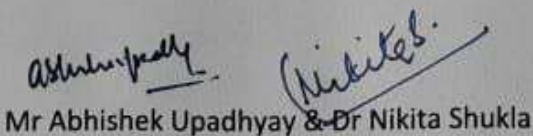 Mr Abhishek Upadhyay & Dr Nikita Shukla